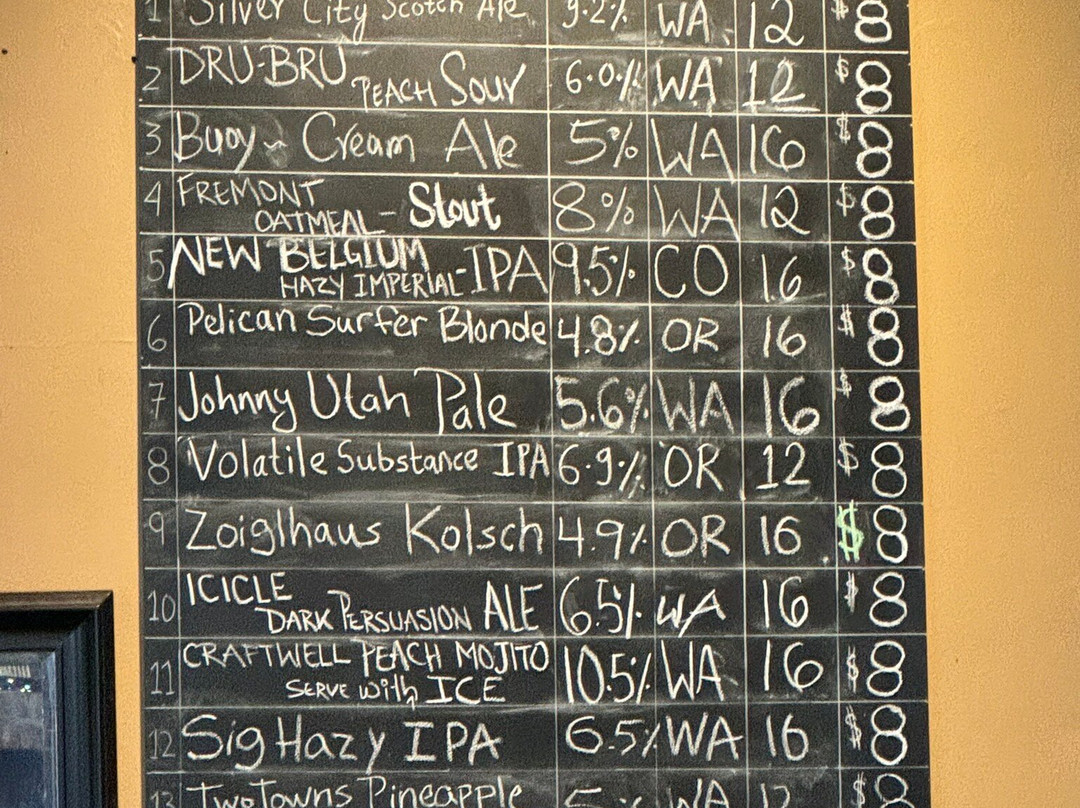 1 Silver City Scotch Ale 9.2% WA 12 $8
2 DRU-BRU PEACH SOUR 6.0% WA 12 $8
3 Buoy ~ Cream Ale 5% WA 16 $8
4 FREMONT
OATMEAL - Stout 8% WA 12 $8
5 NEW BELGIUM
HAZY IMPERIAL - IPA 9.5% CO 16 $8
6 Pelican Surfer Blonde 4.8% OR 16 $8
7 Johnny Utah Pale 5.6% WA 16 $8
8 Volatile Substance IPA 6.9% OR 12 $8
9 Zoiglhaus Kolsch 4.9% OR 16 $8
10 ICICLE
DARK PERSUASION ALE 6.5% WA 16 $8
11 CRAFTWELL PEACH MOJITO
SERVE with ICE 10.5% WA 16 $8
12 Sig Hazy IPA 6.5% WA 16 $8
13 Two Towns Pineapple WA 12 $8